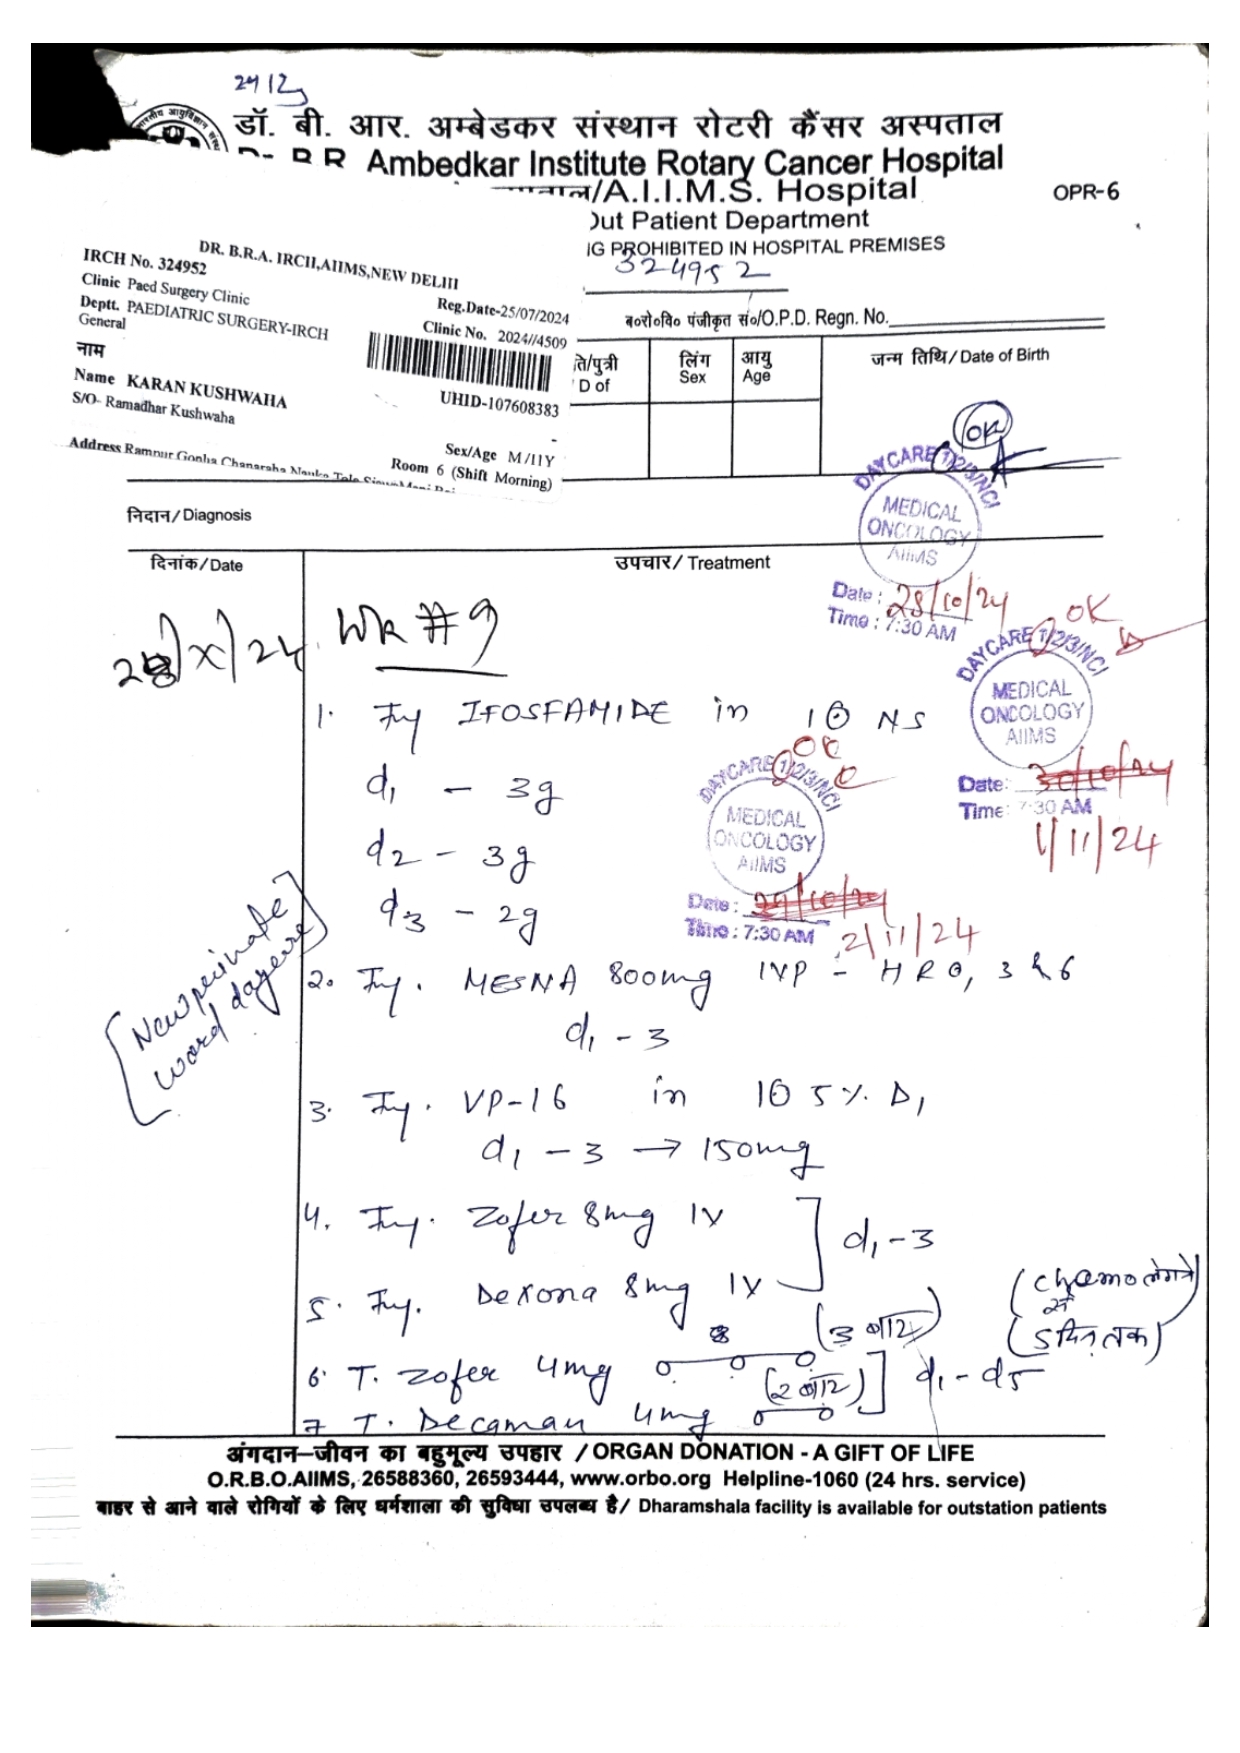 डॉ. बी. आर. अम्बेडकर संस्थान रोटरी कैंसर अस्पताल
B.R. Ambedkar Institute Rotary Cancer Hospital
/A.I.I.M.S. Hospital
OPR-6
Out Patient Department
PROHIBITED IN HOSPITAL PREMISES
324952
DR. B.R.A. IRCH,AIIMS,NEW DELHI
IRCH No. 324952
Clinic Paed Surgery Clinic
Reg.Date-25/07/2024
Deptt. PAEDIATRIC SURGERY-IRCH
Clinic No. 2024//4509
General
नाम
Name KARAN KUSHWAHA
UHID-107608383
S/O- Ramadhar Kushwaha
Sex/Age M/11Y
Address Rampur
Room 6 (Shift Morning)
ब०रो०वि० पंजीकृत सं०/O.P.D. Regn. No.
/पुत्री
D of
लिंग
Sex
आयु
Age
जन्म तिथि/Date of Birth
OK
DAYCARE 1/2/3/NCI
MEDICAL
ONCOLOGY
AIIMS
Date: 28/10/24
Time: 7:30 AM
निदान/Diagnosis
दिनांक/Date
उपचार/Treatment
28/X/24 Wk #9
OK
DAYCARE 1/2/3/NCI
MEDICAL
ONCOLOGY
AIIMS
Date: 30/10/24
Time: 7:30 AM
1/11/24
1. Inj IFOSFAMIDE in NS
d1 - 3g
d2 - 3g
d3 - 2g
OK
DAYCARE 1/2/3/NCI
MEDICAL
ONCOLOGY
AIIMS
Date: 29/10/24
Time: 7:30 AM
2/11/24
[New private
word daycare]
2. Inj. MESNA 800mg IVP - HR 0, 3 & 6
d1 - 3
3. Inj. VP-16 in 5% D,
d1 - 3 → 150mg
4. Inj. Zofer 8mg IV
d1-3
5. Inj. Dexona 8mg IV
(3 बार)
(chemo लगने
से
(5 दिन तक)
6. T. Zofer 4mg
(2 बार)
d1 - d5
7 T. Decaman 4mg
अंगदान–जीवन का बहुमूल्य उपहार / ORGAN DONATION - A GIFT OF LIFE
O.R.B.O.AIIMS, 26588360, 26593444, www.orbo.org Helpline-1060 (24 hrs. service)
बाहर से आने वाले रोगियों के लिए धर्मशाला की सुविधा उपलब्ध है/ Dharamshala facility is available for outstation patients